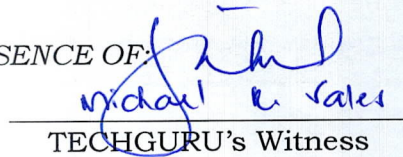 SENCE OF:
Michael R. Sales
TECHGURU's Witness